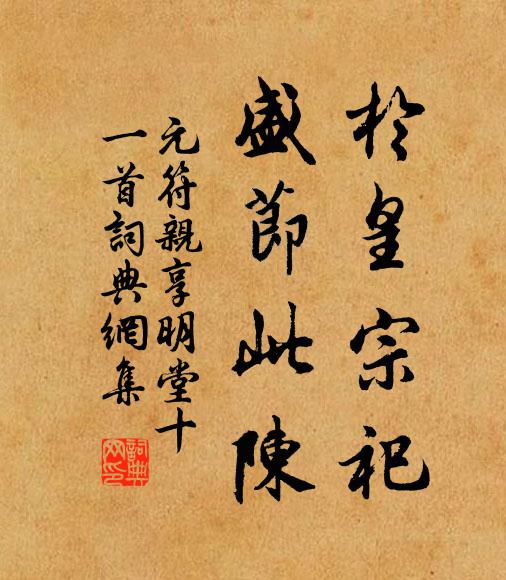 於皇宗祀
盛節此陳
元符親享明堂十
一首詞典網集
詞典
网印